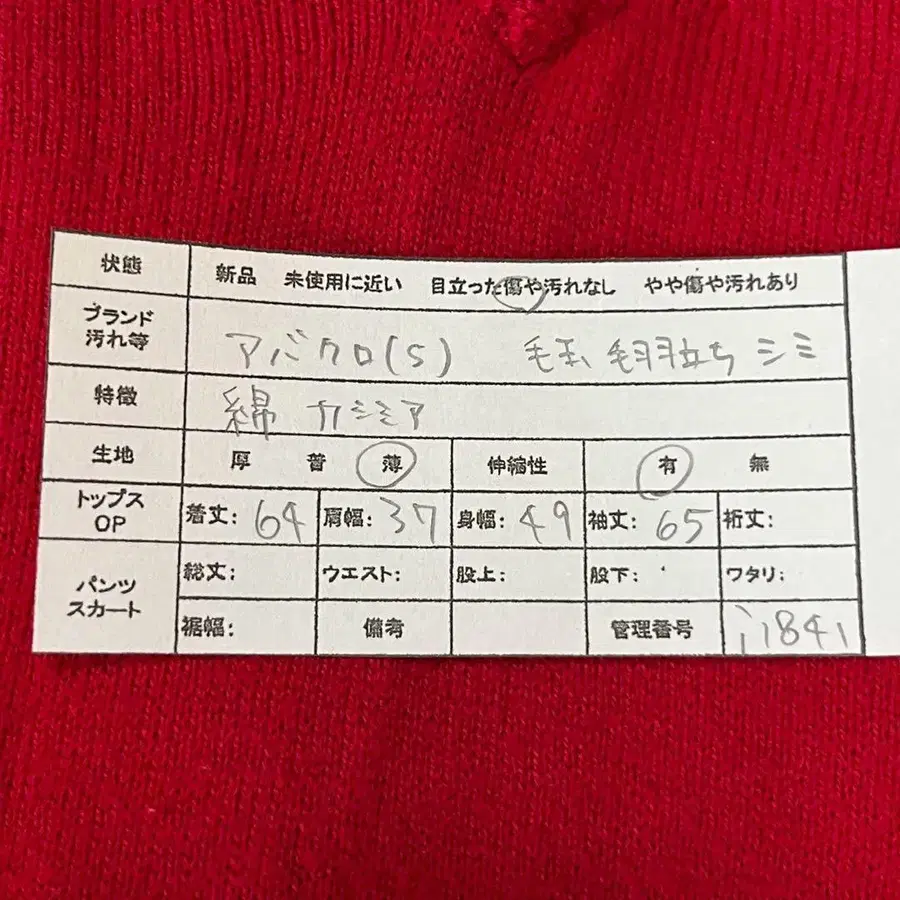 状態 新品 未使用に近い 目立った傷や汚れなし やや傷や汚れあり
ブランド
汚れ等 アバクロ(S) 毛玉 毛羽立ち シミ
特徴 綿 カシミア
生地 厚 普 薄 伸縮性 有 無
トップス
OP 着丈: 64 肩幅: 37 身幅: 49 袖丈: 65 裄丈:
パンツ
スカート 総丈: ウエスト: 股上: 股下: ワタリ:
裾幅: 備考 管理番号